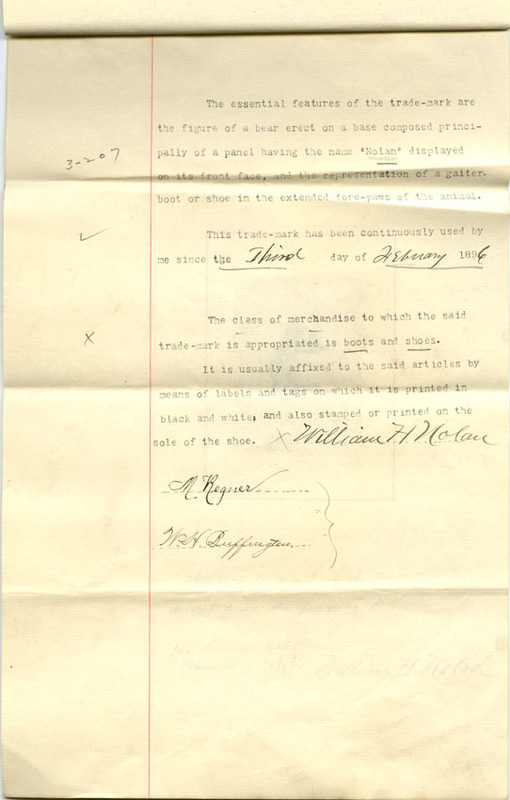 The essential features of the trade-mark are
the figure of a bear erect on a base composed princi-
pally of a panel having the name "Nolan" displayed
3-207
on its front face, and the representation of a gaiter
boot or shoe in the extended fore-paws of the animal.
This trade-mark has been continuously used by
me since the Third day of February 1896
The class of merchandise to which the said
x
trade-mark is appropriated is boots and shoes.
It is usually affixed to the said articles by
means of labels and tags on which it is printed in
black and white, and also stamped or printed on the
sole of the shoe. x William H Nolan
M. Regner
W. H. Buffington